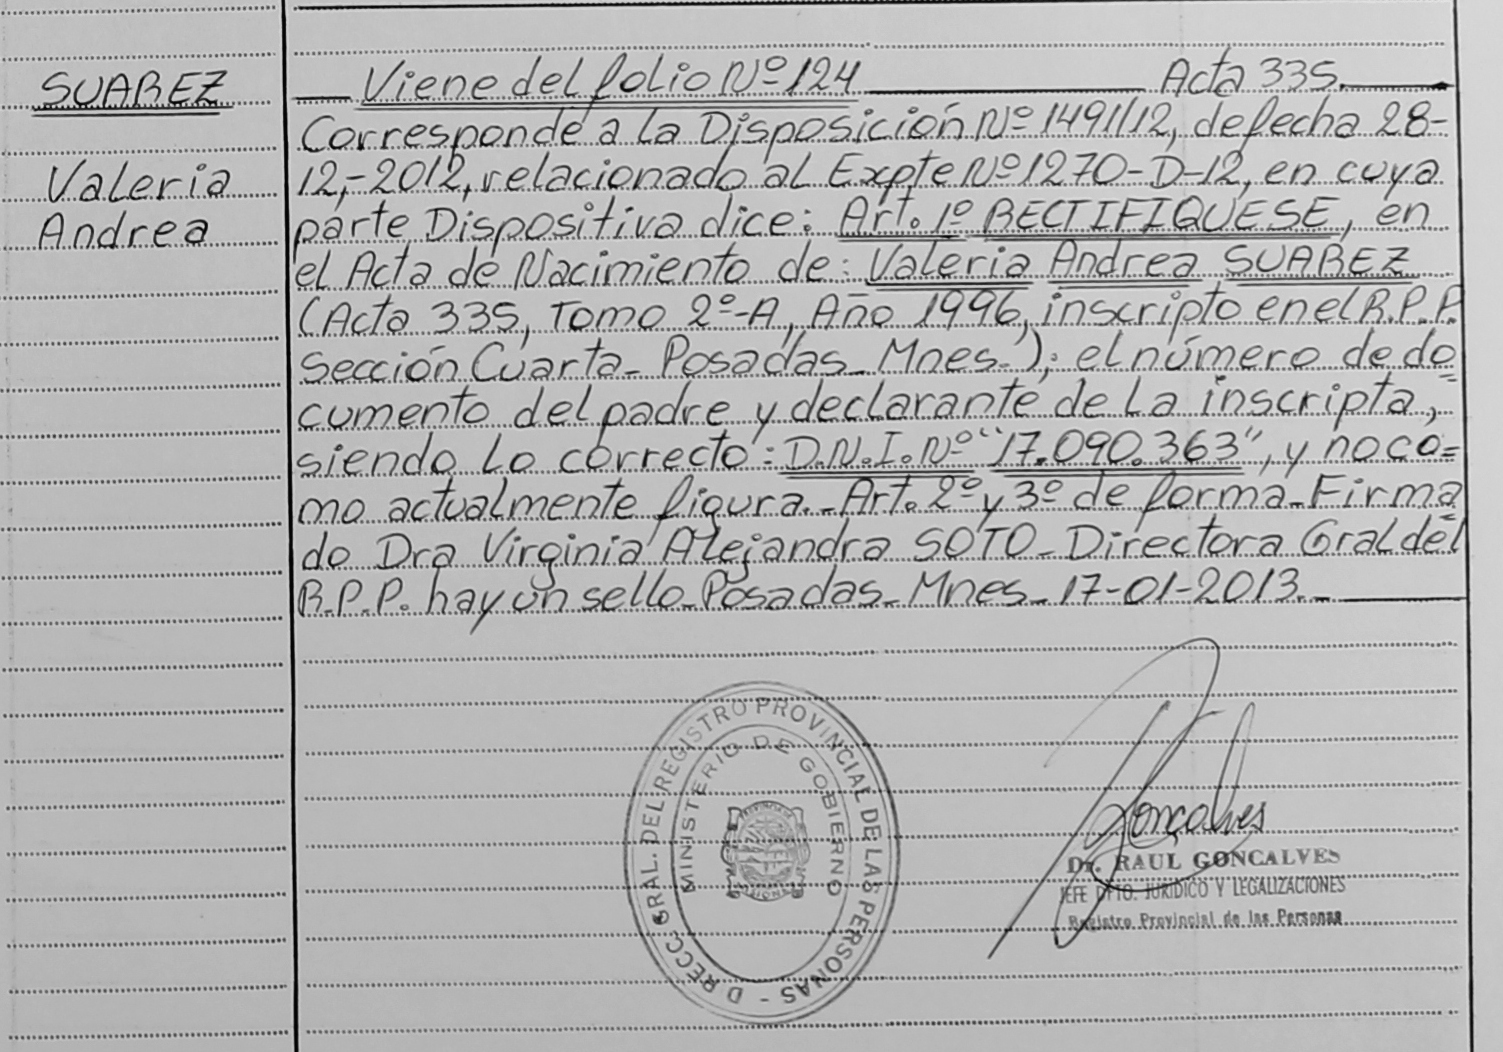 SUAREZ
Valeria
Andrea
Viene del folio Nº 124 Acta 335.
Corresponde a la Disposición Nº 1491/12, de fecha 28-
12,-2012, relacionado al Expte Nº 1270-D-12, en cuya
parte Dispositiva dice: Art. 1º RECTIFIQUESE, en
el Acta de Nacimiento de: Valeria Andrea SUAREZ
(Acta 335, Tomo 2º-A, Año 1996, inscripto en el R.P.P.
Sección Cuarta- Posadas- Mnes.); el número de do=
cumento del padre y declarante de la inscripta,
siendo lo correcto: D.N.I. Nº "17.090.363", y no co=
mo actualmente figura.- Art. 2º y 3º de forma- Firma=
do Dra Virginia Alejandra SOTO- Directora Gral del
R.P.P. hay un sello- Posadas- Mnes- 17-01-2013.-
DIRECC. GRAL. DEL REGISTRO PROVINCIAL DE LAS PERSONAS -
MINISTERIO DE GOBIERNO
Goncalves
Dr. RAUL GONCALVES
JEFE DPTO. JURIDICO Y LEGALIZACIONES
Registro Provincial de las Personas